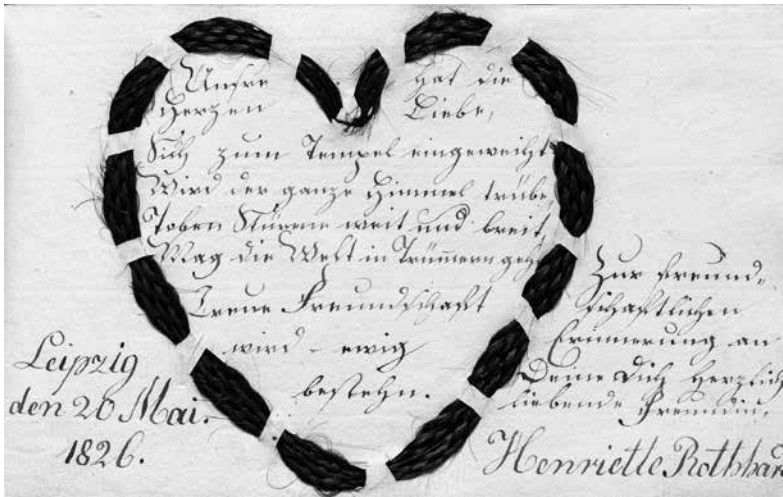 Unsre hat die
Herzen Liebe,
Sich zum Tempel eingeweiht
Wird der ganze Himmel trübe,
Toben Stürme weit und breit,
Mag die Welt in Trümmern gehn
Treue Freundschaft
wird ewig
bestehn.
Leipzig
den 20 Mai.
1826.
Zur freund-
schaftlichen
Erinnerung an
Deine Dich herzlich
liebende Freundin,
Henriette Rothhar